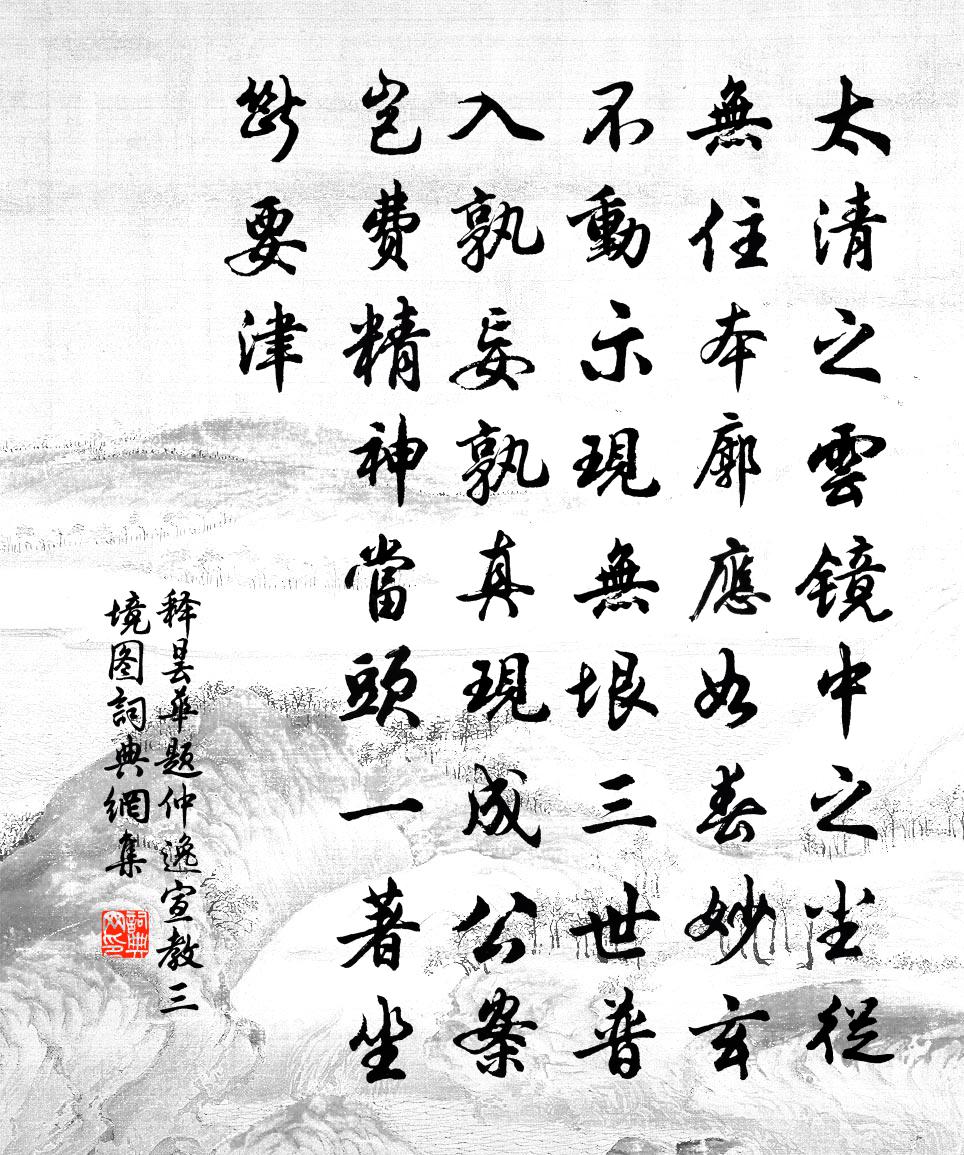 太清之雲鏡中之尘從
無住本廓應如春妙玄
不動示現無垠三世普
入孰妄孰真現成公案
豈費精神當頭一著坐
斷要津
释曇華題仲逸宣教三
境图詞典網集
詞典
网印